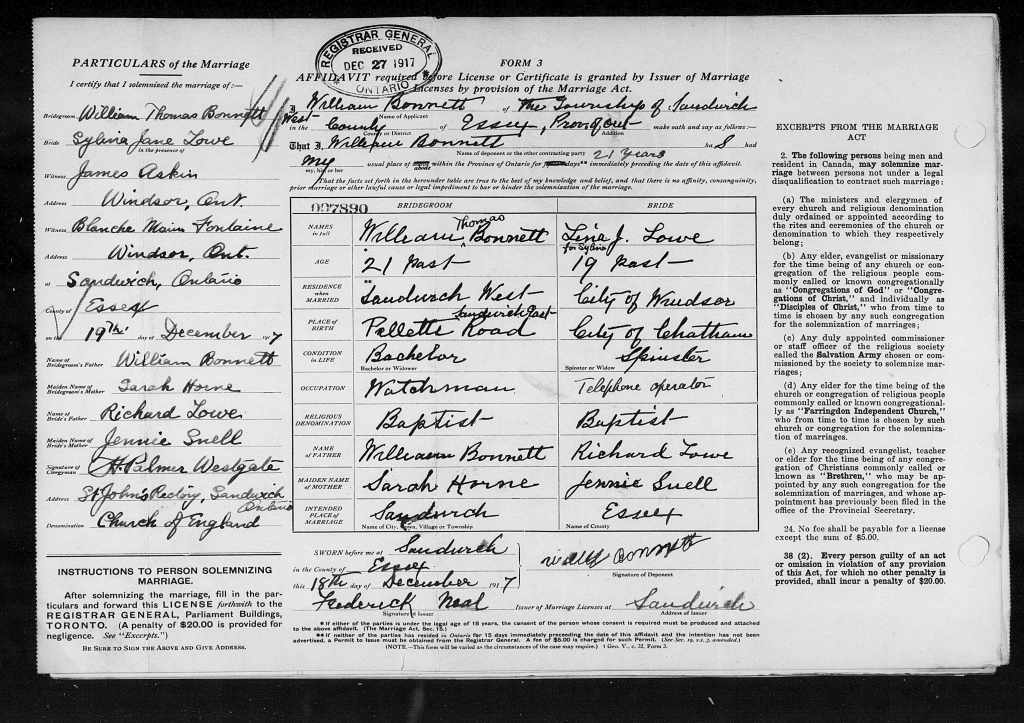 REGISTRAR GENERAL
RECEIVED
DEC 27 1917
ONTARIO
PARTICULARS of the Marriage
I certify that I solemnized the marriage of:—
Bridegroom William Thomas Bonnett
Bride Sylvia Jane Lowe
in the presence of
Witness James Askin
Address Windsor, Ont.
Witness Blanche Fontaine
Address Windsor, Ont.
at Sandwich, Ontario
County of Essex
on the 19th day of December 1917
Name of Bridegroom's Father William Bonnett
Maiden Name of Bridegroom's Mother Sarah Horne
Name of Bride's Father Richard Lowe
Maiden Name of Bride's Mother Jennie Snell
Signature of Clergyman H. Palmer Westgate
Address St John's Rectory, Sandwich Ontario
Denomination Church of England
INSTRUCTIONS TO PERSON SOLEMNIZING MARRIAGE.
After solemnizing the marriage, fill in the par-
ticulars and forward this LICENSE forthwith to the
REGISTRAR GENERAL, Parliament Buildings,
TORONTO. (A penalty of $20.00 is provided for
negligence. See "Excerpts.")
BE SURE TO SIGN THE ABOVE AND GIVE ADDRESS.
FORM 3
AFFIDAVIT required before License or Certificate is granted by Issuer of Marriage
Licenses by provision of the Marriage Act.
I William Bonnett of the Township of Sandwich
Name of Applicant
West in the County of Essex, Prov of Ont make oath and say as follows:—
County or District Addition
That I, William Bonnett ha s had
Name of deponent or the other contracting party 21 Years
my usual place of abode within the Province of Ontario for days** immediately preceding the date of this affidavit.
my, his or her
That the facts set forth in the hereunder table are true to the best of my knowledge and belief, and that there is no affinity, consanguinity,
prior marriage or other lawful cause or legal impediment to bar or hinder the solemnization of the marriage.
027890 BRIDEGROOM BRIDE
NAMES in full William Thomas Bonnett Lina J. Lowe for Sylvia
AGE * 21 past 19 past
RESIDENCE when MARRIED ** Sandwich West City of Windsor
PLACE OF BIRTH Pillette Road Sandwich East City of Chatham
CONDITION IN LIFE Bachelor Spinster
Bachelor or Widower Spinster or Widow
OCCUPATION Watchman Telephone operator
RELIGIOUS DENOMINATION Baptist Baptist
NAME OF FATHER William Bonnett Richard Lowe
MAIDEN NAME OF MOTHER Sarah Horne Jennie Snell
INTENDED PLACE OF MARRIAGE Sandwich Essex
Name of City, Town, Village or Township Name of County
SWORN before me at Sandwich
in the County of Essex
this 18th day of December 1917
Bonnett
Signature of Deponent
Frederick Neal Issuer of Marriage Licenses at Sandwich
Signature of Issuer Address of Issuer
* If either of the parties is under the legal age of 18 years, the consent of the person whose consent is required must be produced and attached
to the above affidavit. (The Marriage Act, Sec. 15.)
** If neither of the parties has resided in Ontario for 15 days immediately preceding the date of this affidavit and the intention has not been
advertised, a Permit to Issue must be obtained from the Registrar General. A fee of $5.00 is charged for such Permit. (See Sec. 19, s.s. 3, amended.)
(NOTE.—This form will be varied as the circumstances of the case may require.) 1 Geo. V., c. 32, Form 3.
EXCERPTS FROM THE MARRIAGE
ACT
2. The following persons being men and
resident in Canada, may solemnize mar-
riage between persons not under a legal
disqualification to contract such marriage:
(a) The ministers and clergymen of
every church and religious denomination
duly ordained or appointed according to
the rites and ceremonies of the church or
denomination to which they respectively
belong;
(b) Any elder, evangelist or missionary
for the time being of any church or con-
gregation of the religious people com-
monly called or known congregationally
as "Congregations of God" or "Congre-
gations of Christ," and individually as
"Disciples of Christ," who from time to
time is chosen by any such congregation
for the solemnization of marriages;
(c) Any duly appointed commissioner
or staff officer of the religious society
called the Salvation Army chosen or com-
missioned by the society to solemnize mar-
riages;
(d) Any elder for the time being of the
church or congregation of religious people
commonly called or known congregational-
ly as "Farringdon Independent Church,"
who from time to time is chosen by any such
church or congregation for the solemniza-
tion of marriages.
(e) Any recognized evangelist, teacher
or elder for the time being of any congre-
gation of Christians commonly called or
known as "Brethren," who may be ap-
pointed by any such congregation for the
solemnization of marriages, and whose appoint-
ment has previously been filed in the
office of the Provincial Secretary.
24. No fee shall be payable for a license
except the sum of $5.00.
38 (2). Every person guilty of an act
or omission in violation of any provision
of this Act, for which no other penalty is
provided, shall incur a penalty of $20.00.